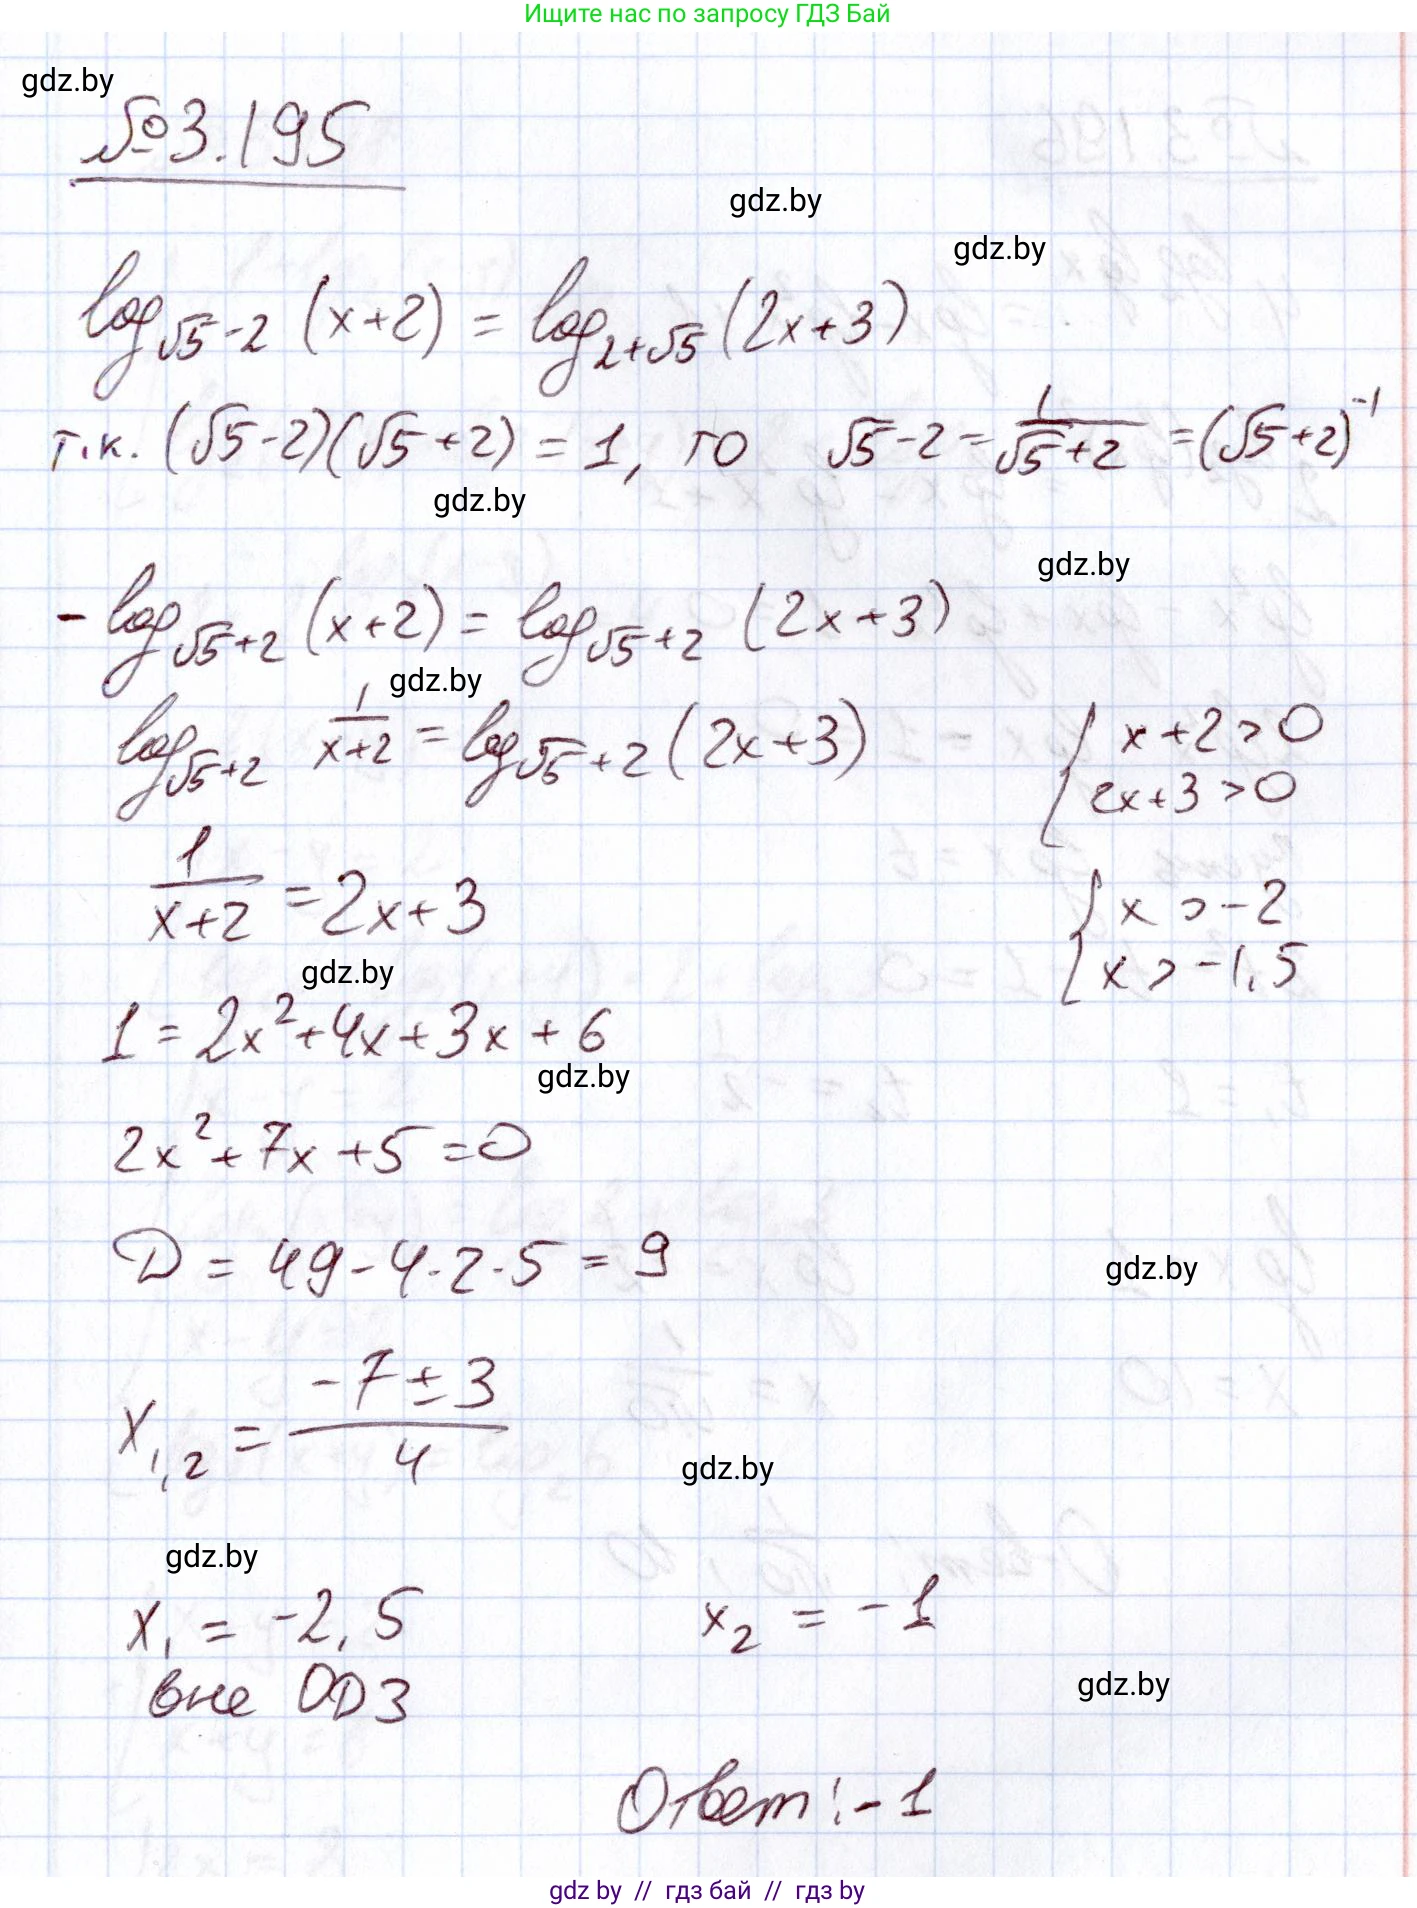 Ищите нас по запросу ГДЗ Бай
gdz.by
№3.195
gdz.by
gdz.by
log_{√5-2} (x+2) = log_{2+√5} (2x+3)
т.к. (√5-2)(√5+2) = 1, то √5-2 = 1/(√5+2) = (√5+2)^{-1}
gdz.by
gdz.by
-log_{√5+2} (x+2) = log_{√5+2} (2x+3)
gdz.by
log_{√5+2} 1/(x+2) = log_{√5+2} (2x+3)
{ x+2>0
2x+3>0
1/(x+2) = 2x+3
{ x > -2
x > -1,5
gdz.by
1 = 2x²+4x+3x+6
gdz.by
2x²+7x+5=0
D = 49-4·2·5 = 9
gdz.by
x_{1,2} = (-7±3)/4
gdz.by
gdz.by
x₁ = -2,5 x₂ = -1
вне ОДЗ
gdz.by
Ответ: -1
gdz by // гдз бай // гдз by